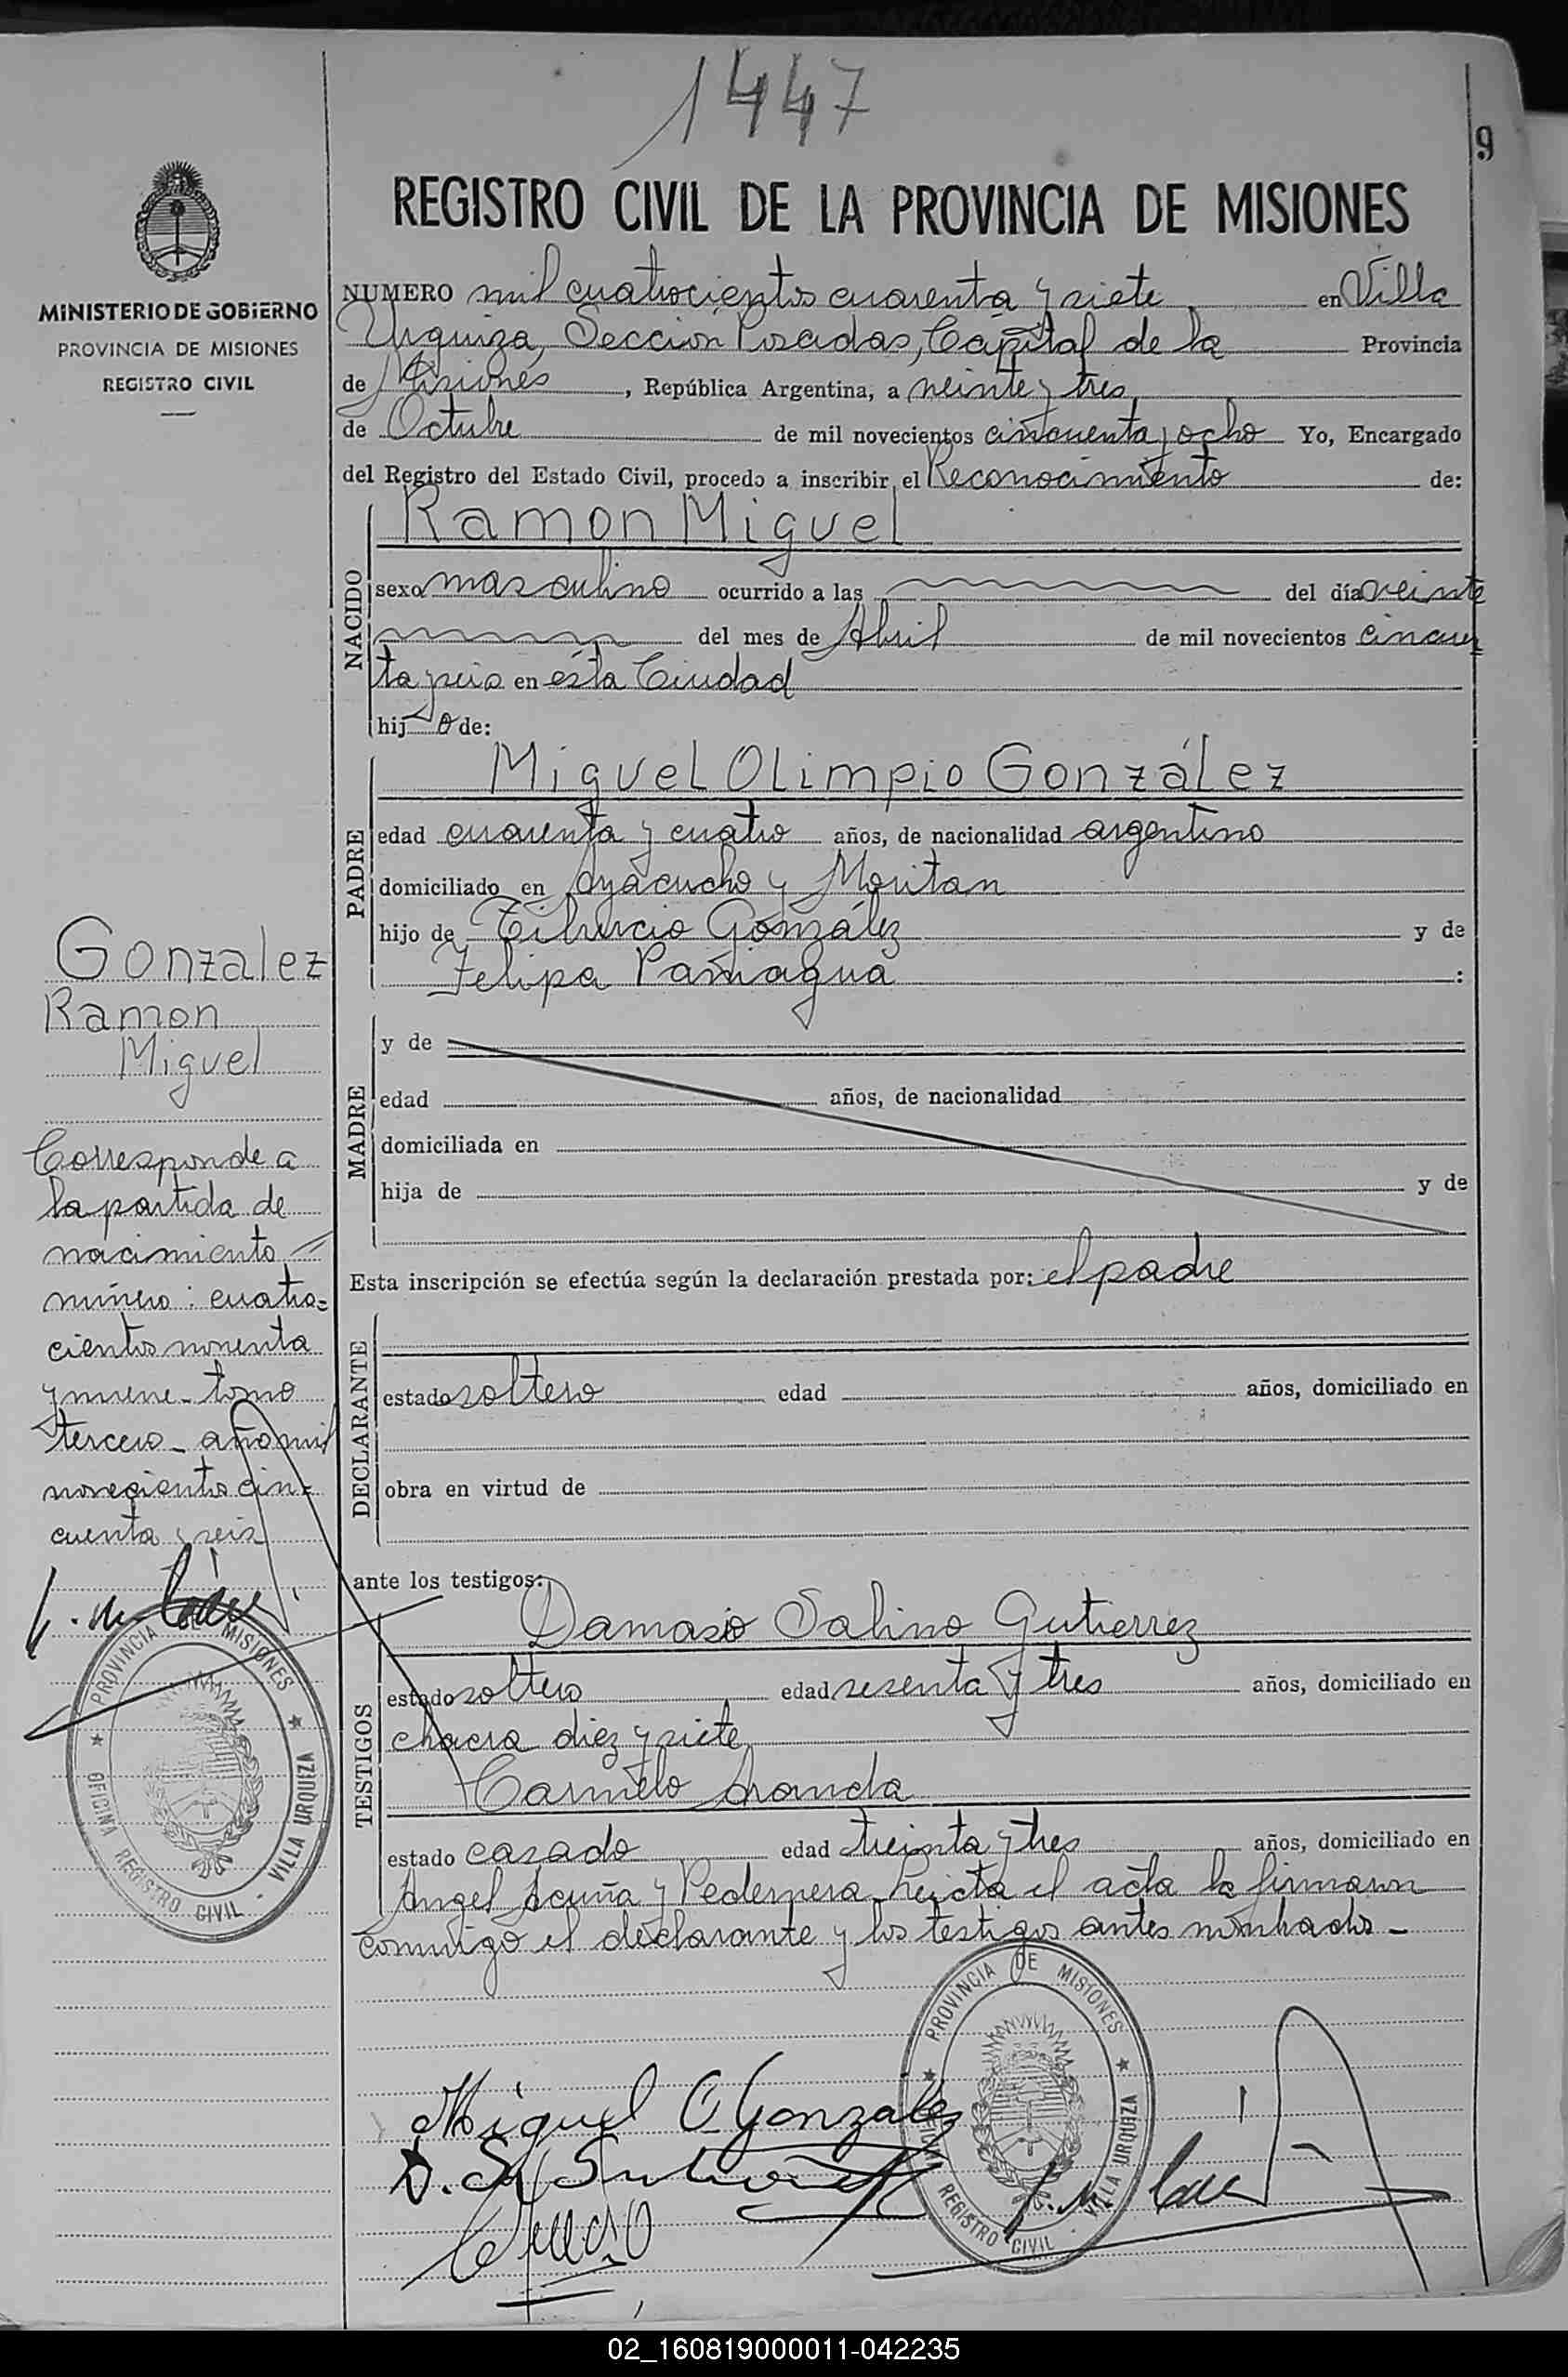 1447
9
REGISTRO CIVIL DE LA PROVINCIA DE MISIONES
MINISTERIO DE GOBIERNO
PROVINCIA DE MISIONES
REGISTRO CIVIL
NUMERO mil cuatrocientos cuarenta y siete en Villa
Urquiza, Sección Posadas, Capital de la Provincia
de Misiones, República Argentina, a veinte y tres
de Octubre de mil novecientos cincuenta y ocho Yo, Encargado
del Registro del Estado Civil, procedo a inscribir el Reconocimiento de:
NACIDO
Ramon Miguel
sexo masculino ocurrido a las del día veinte
del mes de Abril de mil novecientos cincuen
ta y seis en ésta Ciudad
hijo de:
PADRE
Miguel Olimpio González
edad cuarenta y cuatro años, de nacionalidad argentino
domiciliado en Ayacucho y Moritan
hijo de Tiburcio González y de
Felipa Paniagua :
MADRE
y de
edad años, de nacionalidad
domiciliada en
hija de y de
Esta inscripción se efectúa según la declaración prestada por: el padre
DECLARANTE
estado soltero edad años, domiciliado en
obra en virtud de
ante los testigos:
TESTIGOS
Damasio Salino Gutierrez
estado soltero edad sesenta y tres años, domiciliado en
chacra diez y siete
Carmelo Aranda
estado casado edad treinta y tres años, domiciliado en
Angel Acuña y Pedernera. Leícta el acta la firmaron
conmigo el declarante y los testigos antes nombrados -
Gonzalez
Ramon
Miguel
Corresponde a
la partida de
nacimiento
número: cuatro=
cientos noventa
y nueve - tomo
tercero - año mil
novecientos cin=
cuenta y seis
PROVINCIA DE MISIONES
OFICINA REGISTRO CIVIL - VILLA URQUIZA
Miguel O Gonzalez
D. S. Gutierrez
PROVINCIA DE MISIONES
OFICINA REGISTRO CIVIL - VILLA URQUIZA
02_160819000011-042235